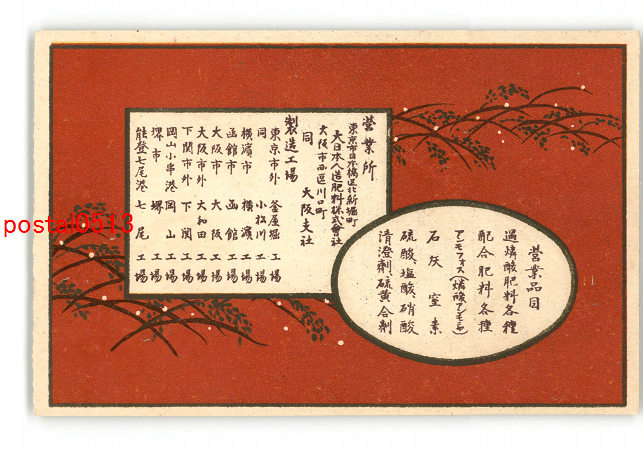 營業所
東京市日本橋區北新堀町
大日本人造肥料株式會社
大阪市西區川口町
同 大阪支社
製造工場
東京市外 釜屋堀工場
同 小松川工場
横濱市 横濱工場
函館市 函館工場
大阪市 大阪工場
大阪市外 大和田工場
下関市外 下関工場
岡山小串港 岡山工場
堺市 堺工場
能登七尾港 七尾工場
營業品目
過燐酸肥料各種
配合肥料各種
アンモフォス(燐酸アンモニヤ)
石灰窒素
硫酸、塩酸、硝酸
清澄剤、硫黄合剤
postal0513